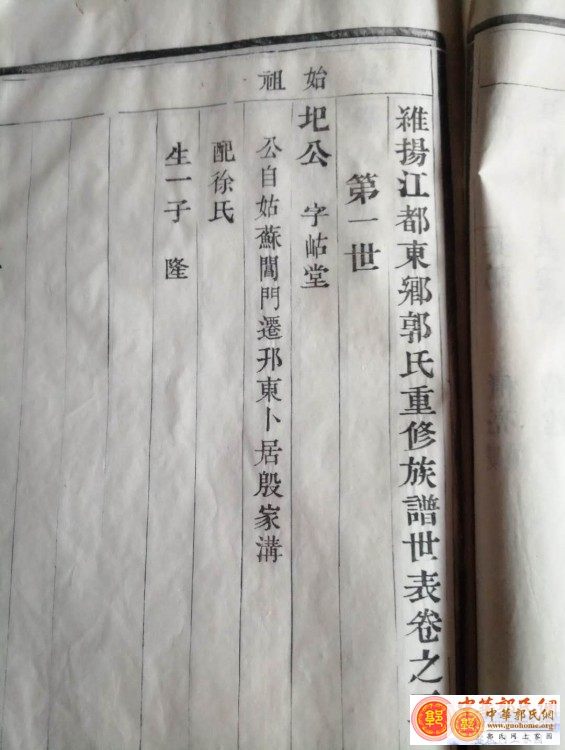 維揚江都東鄉郭氏重修族譜世表卷之
第一世
始祖
圯公 字岵堂
公自姑蘇閶門遷邗東卜居殷家溝
配徐氏
生一子 隆
中華郭氏網
www.guohome.org
郭氏网上家园